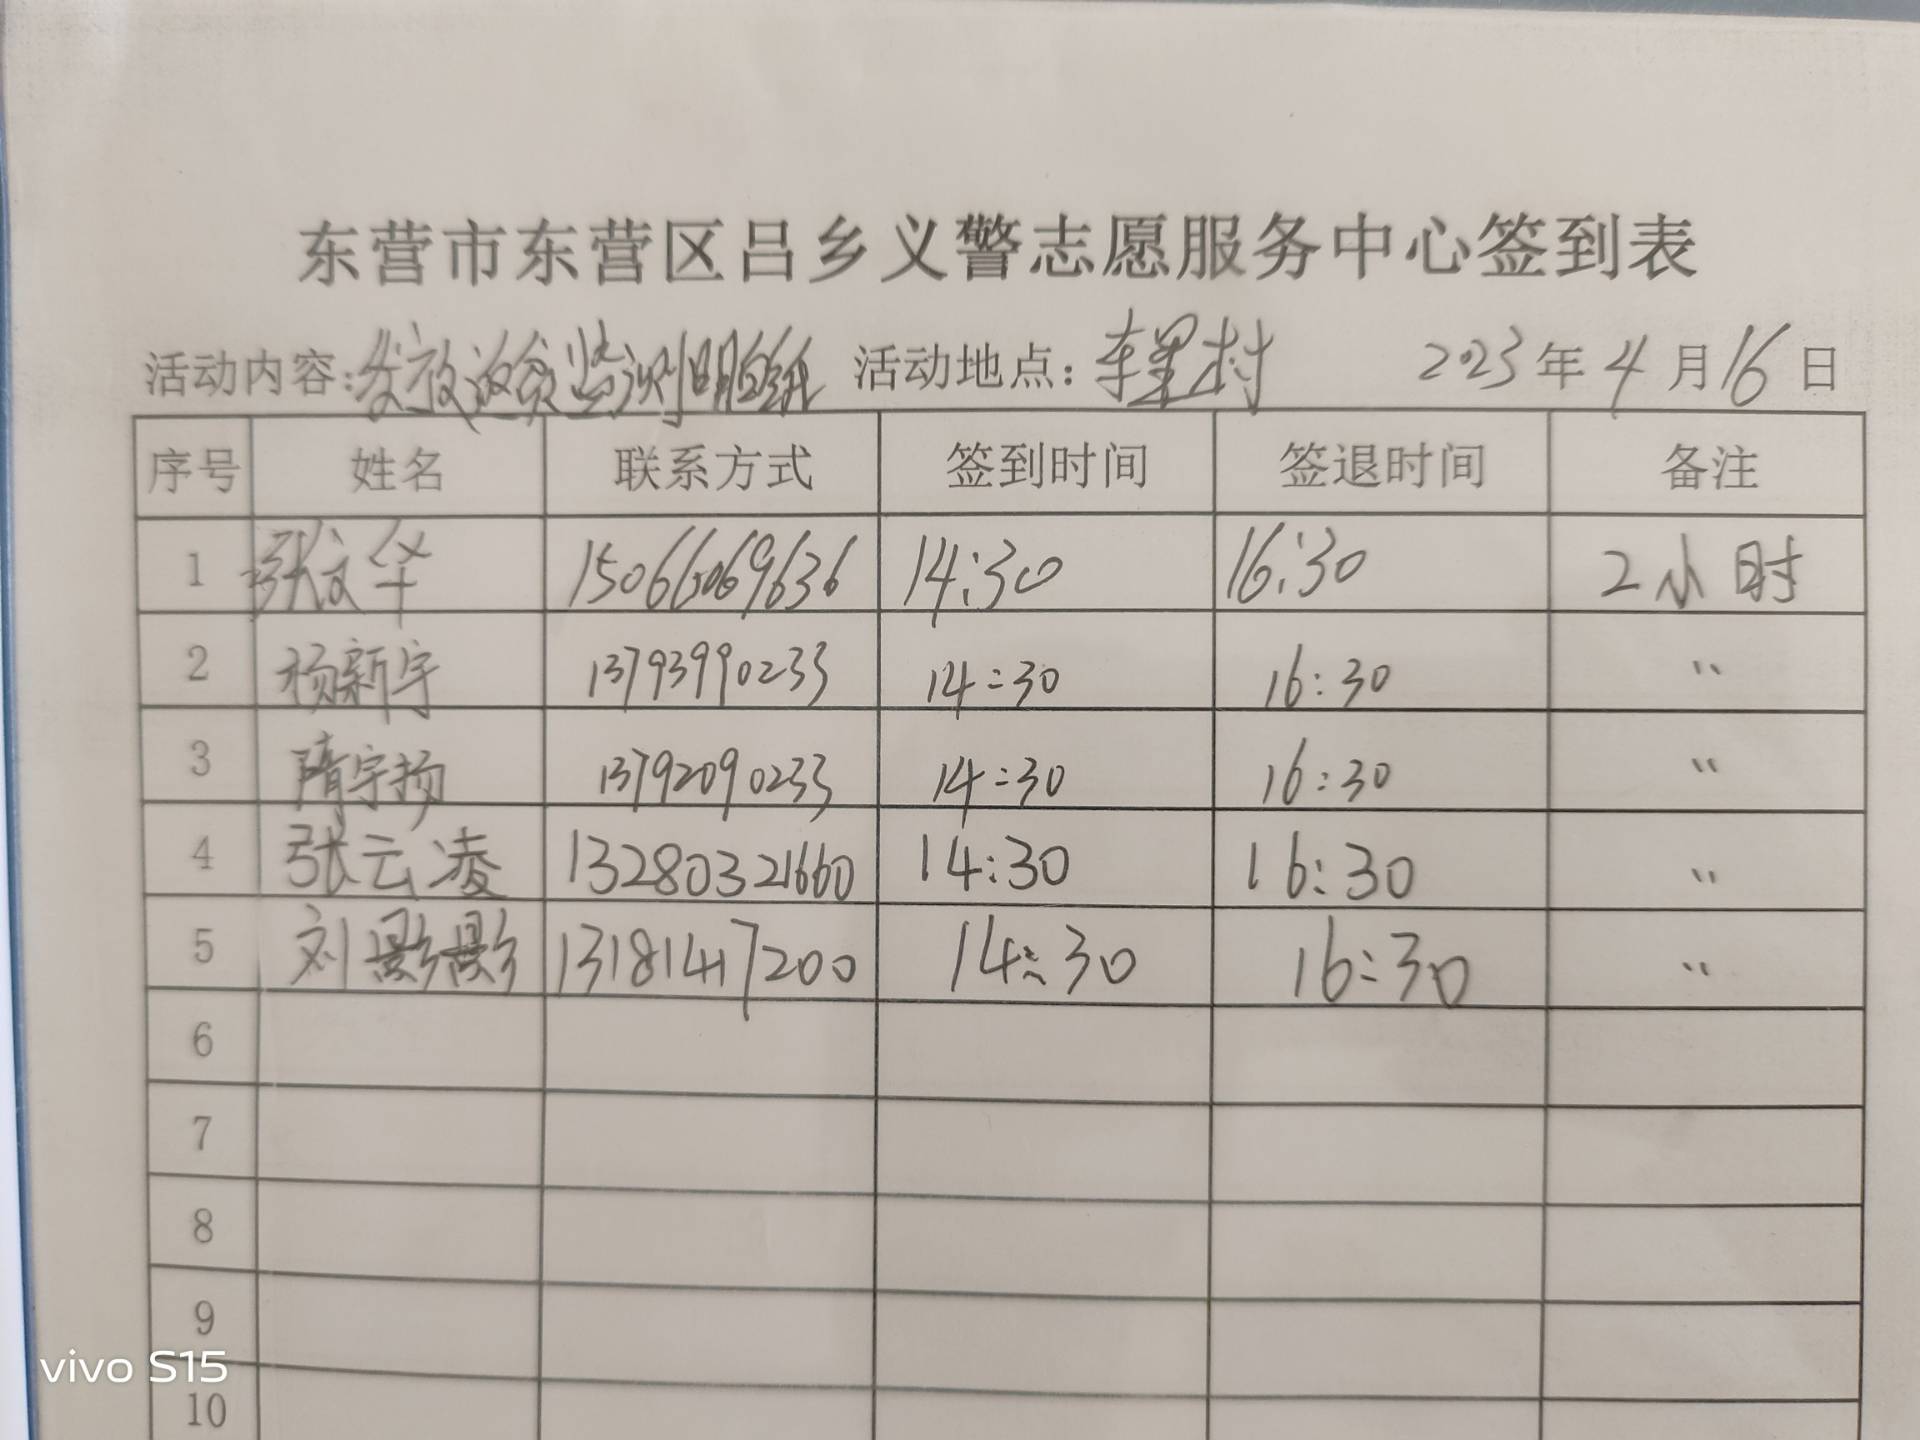 东营市东营区吕乡义警志愿服务中心签到表
活动内容:发放返贫监测明白纸 活动地点:车里村 2023年4月16日
序号 姓名 联系方式 签到时间 签退时间 备注
1 张文华 15066069636 14:30 16:30 2小时
2 杨新宇 13793990233 14:30 16:30 〃
3 隋宇扬 13792090233 14:30 16:30 〃
4 张云凌 13280321660 14:30 16:30 〃
5 刘影影 13181417200 14:30 16:30 〃
6
7
8
9
10
vivo S15